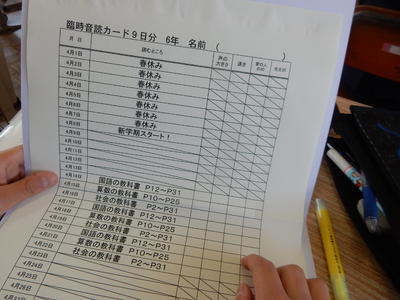 臨時音読カード9日分 6年 名前 ( )
月 日 読むところ 声の大きさ 速さ 家の人の印 先生印
4月1日
4月2日 春休み
4月3日 春休み
4月4日 春休み
4月5日 春休み
4月6日 春休み
4月7日 春休み
4月8日 春休み
4月9日 新学期スタート！
4月10日
4月11日
4月12日
4月13日
4月14日
4月15日 国語の教科書 P12〜P31
4月16日 算数の教科書 P10〜P25
4月17日 社会の教科書 P2〜P31
4月18日 国語の教科書 P12〜P31
4月19日 算数の教科書 P10〜P25
4月20日 社会の教科書 P2〜P31
4月21日 国語の教科書 P12〜P31
4月22日 算数の教科書 P10〜P25
4月23日 社会の教科書 P2〜P31
4月24日
4月25日
4月26日